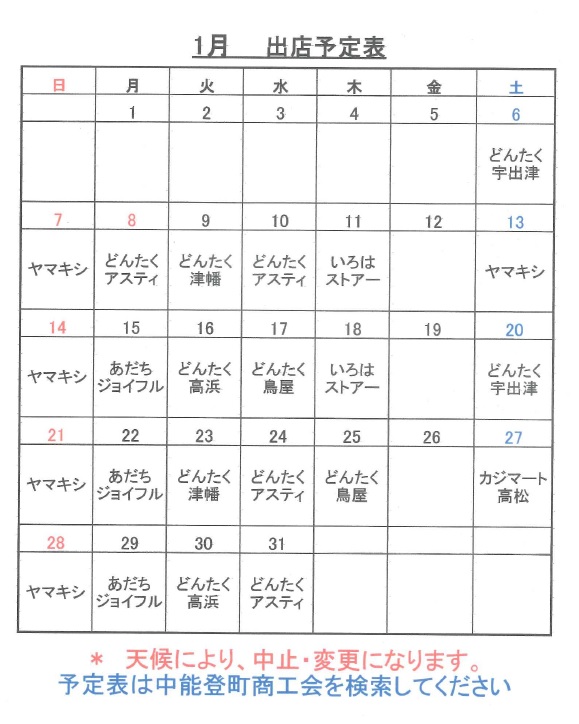 1月 出店予定表
日 月 火 水 木 金 土
1 2 3 4 5 6
どんたく
宇出津
7 8 9 10 11 12 13
ヤマキシ どんたく どんたく どんたく いろは ヤマキシ
アスティ 津幡 アスティ ストアー
14 15 16 17 18 19 20
ヤマキシ あだち どんたく どんたく いろは どんたく
ジョイフル 高浜 鳥屋 ストアー 宇出津
21 22 23 24 25 26 27
ヤマキシ あだち どんたく どんたく どんたく カジマート
ジョイフル 津幡 アスティ 鳥屋 高松
28 29 30 31
ヤマキシ あだち どんたく どんたく
ジョイフル 高浜 アスティ
* 天候により、中止・変更になります。
予定表は中能登町商工会を検索してください